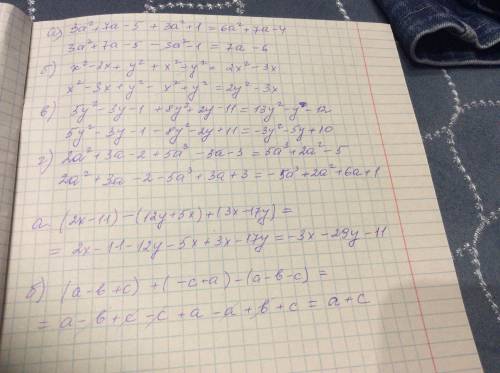 а) 3a²+7a-5+3a²+1=6a²+7a-4
3a²+7a-5-3a²-1=7a-6
б) x²-3x+y²+x²+y²=2x²-3x
x²-3x+y²-x²+y²=2y²-3x
в) 5y²-3y-1+8y²+2y-11=13y²-y-12
5y²-3y-1-8y²-2y+11=-3y²-5y+10
г) 2a²+3a-2+5a³-3a-3=5a³+2a²-5
2a²+3a-2-5a³+3a+3=-5a³+2a²+6a+1
а (2x-11)-(12y+5x)+(3x-17y)=
=2x-11-12y-5x+3x-17y=-3x-29y-11
б) (a-b+c)+(-c+a)-(a-b-c)=
=a-b+c-c+a-a+b+c=a+c